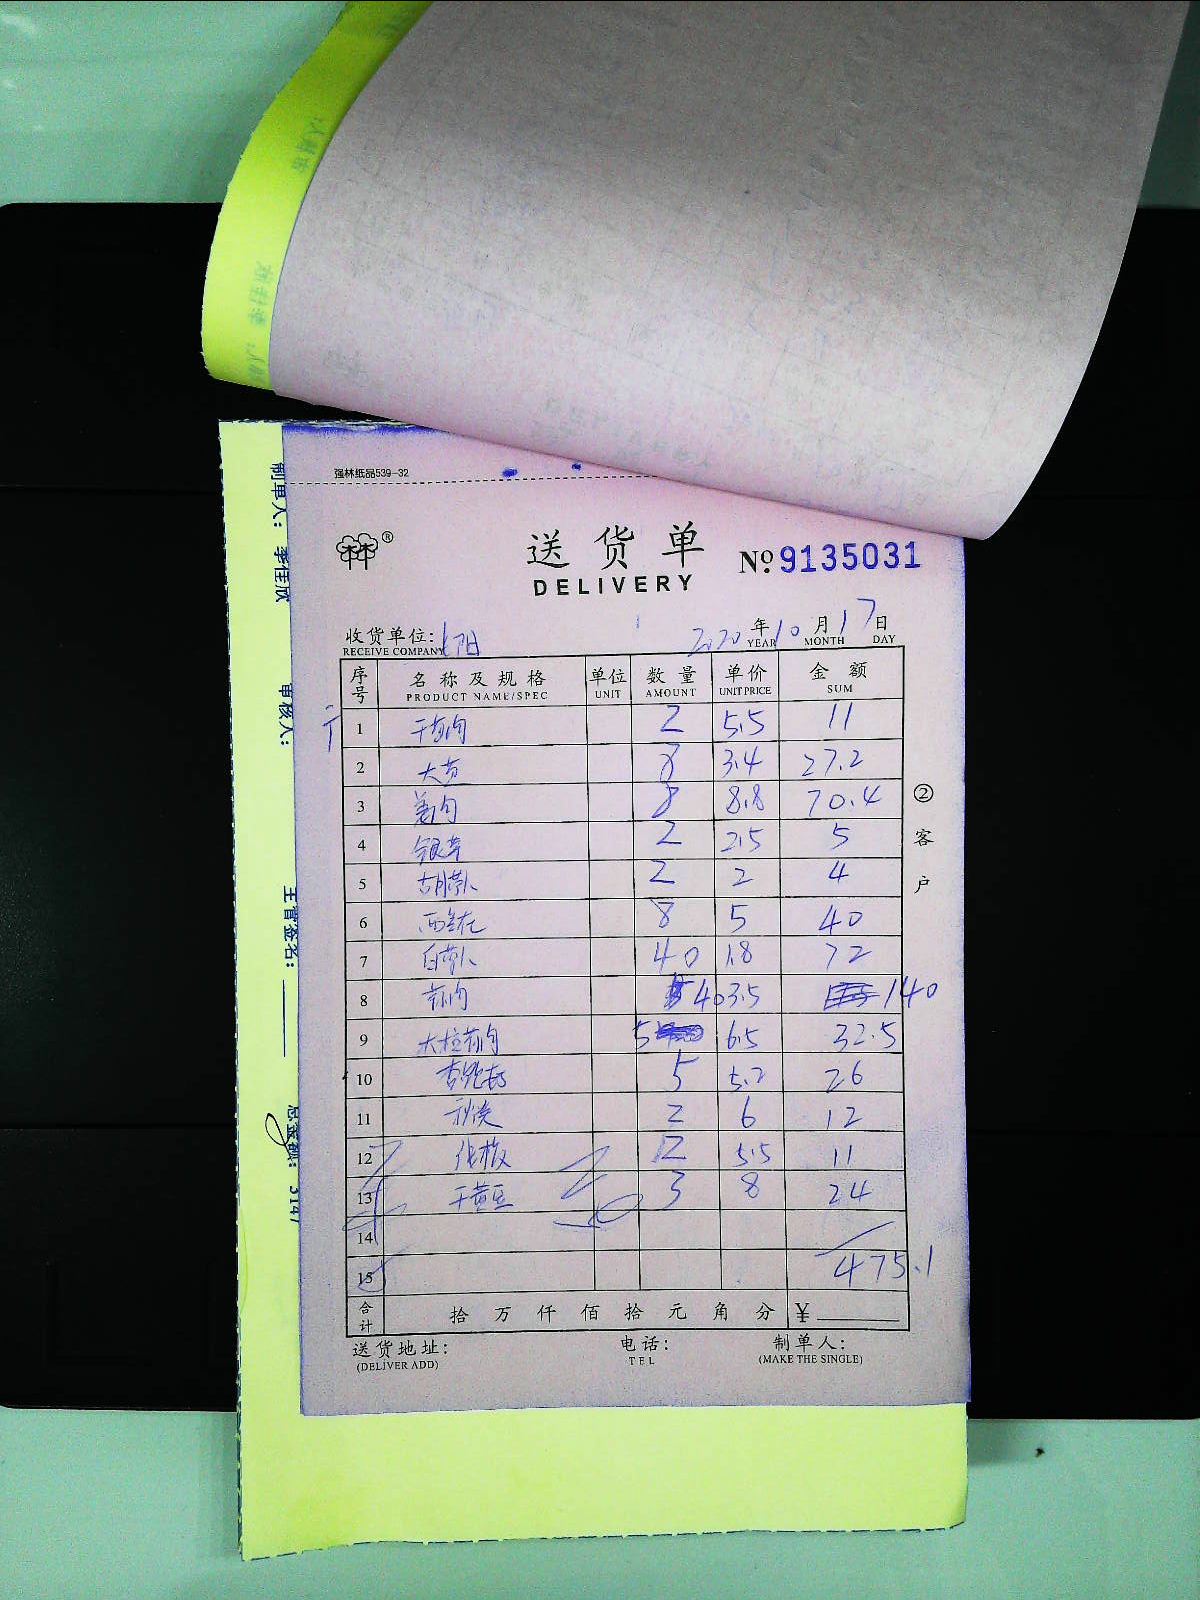 强林纸品539-32
送货单
DELIVERY
№ 9135031
收货单位:
RECEIVE COMPANY
2020 年 10 月 17 日
YEAR MONTH DAY
序号 名称及规格 单位 数量 单价 金额
PRODUCT NAME/SPEC UNIT AMOUNT UNIT PRICE SUM
1 2 5.5 11
2 8 3.4 27.2
3 姜 8 8.8 70.4
4 银芽 2 2.5 5
5 胡萝卜 2 2 4
6 西兰花 8 5 40
7 白萝卜 40 1.8 72
8 40 3.5 140
9 5 6.5 32.5
10 杏鲍菇 5 5.2 26
11 秋葵 2 6 12
12 2 5.5 11
13 干黄豆 3 8 24
14
15 475.1
合计 拾 万 仟 佰 拾 元 角 分 ¥
送货地址: 电话: 制单人:
(DELIVER ADD) TEL (MAKE THE SINGLE)
② 客户
制单人: 李佳欣
审核人:
主管签名:
总金额: 3147